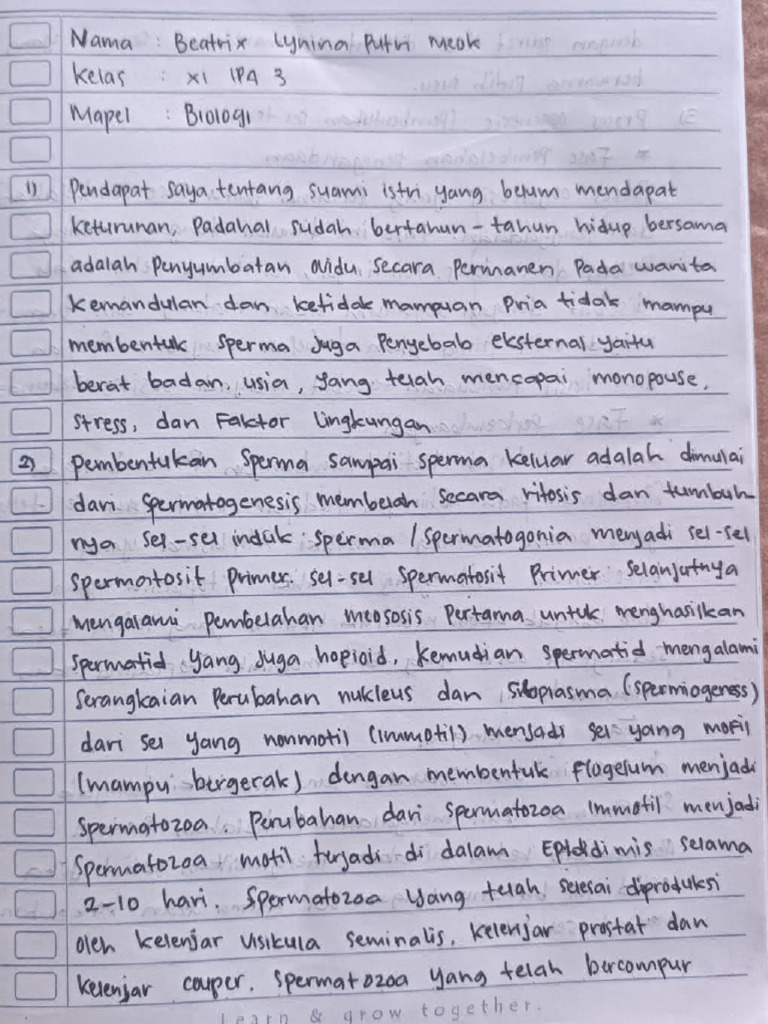 Nama : Beatrix Lynina Putri Meok
Kelas : XI IPA 3
Mapel : Biologi
1) Pendapat saya tentang suami istri yang belum mendapat
keturunan, Padahal sudah bertahun-tahun hidup bersama
adalah Penyumbatan ovidu secara Permanen Pada wanita
kemandulan dan ketidak mampuan Pria tidak mampu
membentuk sperma juga Penyebab eksternal yaitu
berat badan, usia, yang telah mencapai monopouse,
stress, dan Faktor lingkungan
2) Pembentukan Sperma sampai sperma keluar adalah dimulai
dari spermatogenesis membelah secara ritosis dan tumbuh-
nya sel-sel induk sperma / spermatogonia menjadi sel-sel
spermatosit Primer. sel-sel Spermatosit Primer selanjutnya
mengalami pembelahan meososis Pertama untuk menghasilkan
spermatid yang juga hopioid, kemudian spermatid mengalami
serangkaian Perubahan nukleus dan sitoplasma (spermiogenesis)
dari sel yang nonmotil (immotil) menjadi sel yang motil
(mampu bergerak) dengan membentuk Flogelum menjadi
spermatozoa. Perubahan dari spermatozoa immotil menjadi
spermatozoa motil terjadi di dalam Epididimis selama
2-10 hari. Spermatozoa yang telah selesai diproduksi
oleh kelenjar visikula seminalis, kelenjar prostat dan
kelenjar couper. Spermatozoa yang telah bercompur
Learn & grow together.